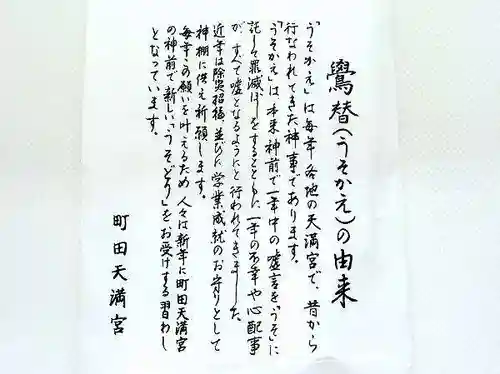 鷽替(うそかえ)の由来
「うそかえ」は毎年各地の天満宮で、昔から
行なわれてきた神事であります。
「うそかえ」は本来神前で一年中の嘘言を「うそ」に
託して罪滅ぼしをするとともに一年の不幸や心配事
が、すべて嘘となるようにと行われてきました。
近年は除災招福並びに学業成就のお守りとして
神棚に供え祈願します。
毎年この願いを叶えるため人々は新年に町田天満宮
の神前で新しい「うそどり」を、お受けする習わし
となっています。
町田天満宮